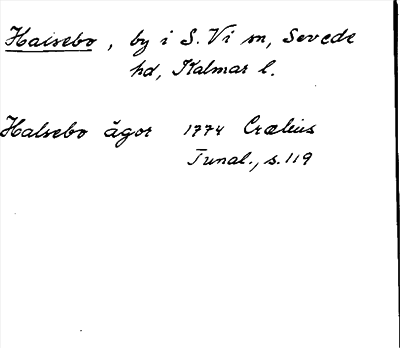 Halsebo, by i S. Vi sn, Sevede
hd, Kalmar l.
Halsebo ägor 1774 Crælius
Tunal., s. 119